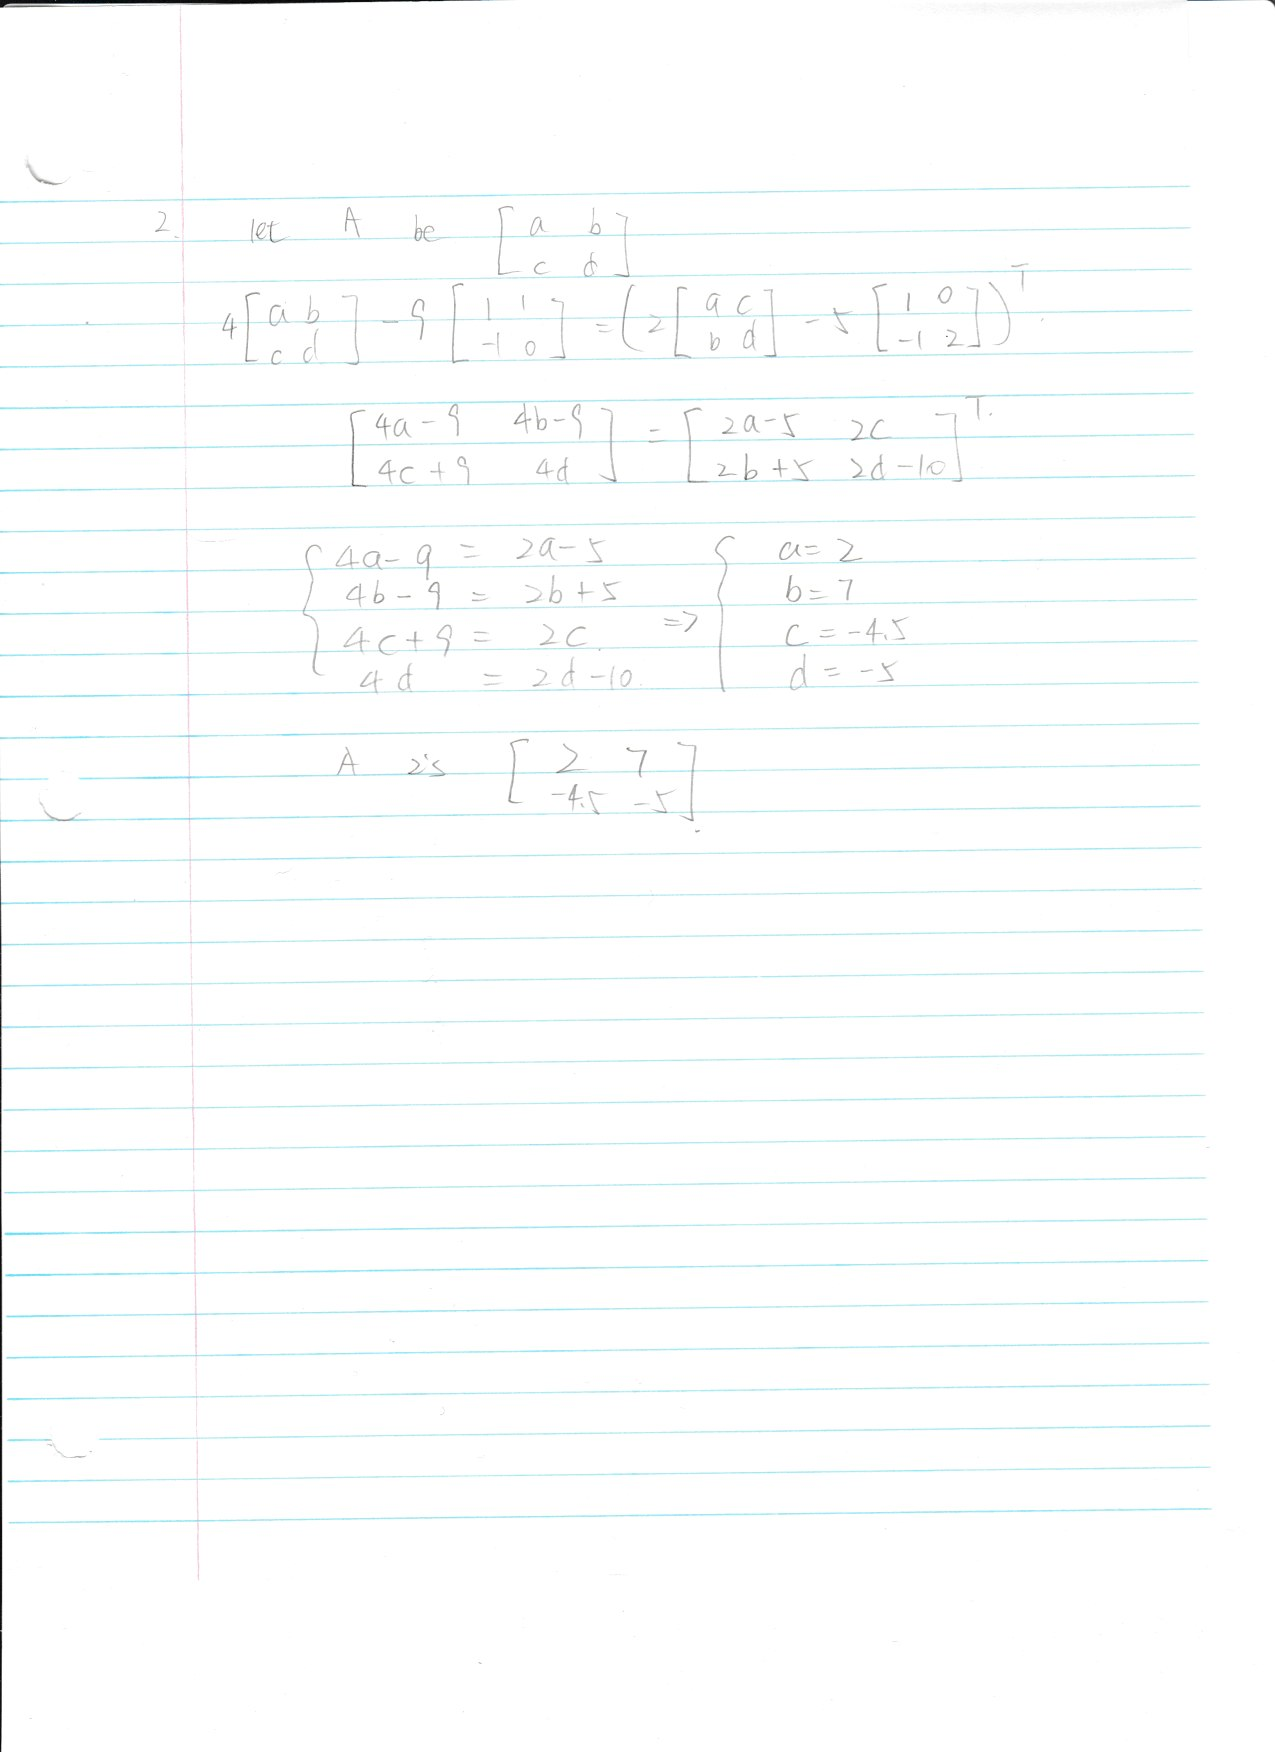 2. let A be [a b; c d]
4[a b; c d] - 9[1 1; -1 0] = (2[a c; b d] - 5[1 0; -1 2])^T.
[4a-9 4b-9; 4c+9 4d] = [2a-5 2c; 2b+5 2d-10]^T.
{4a-9 = 2a-5 => {a=2
4b-9 = 2b+5 b=7
4c+9 = 2c. c=-4.5
4d = 2d-10. d=-5
A is [2 7; -4.5 -5].